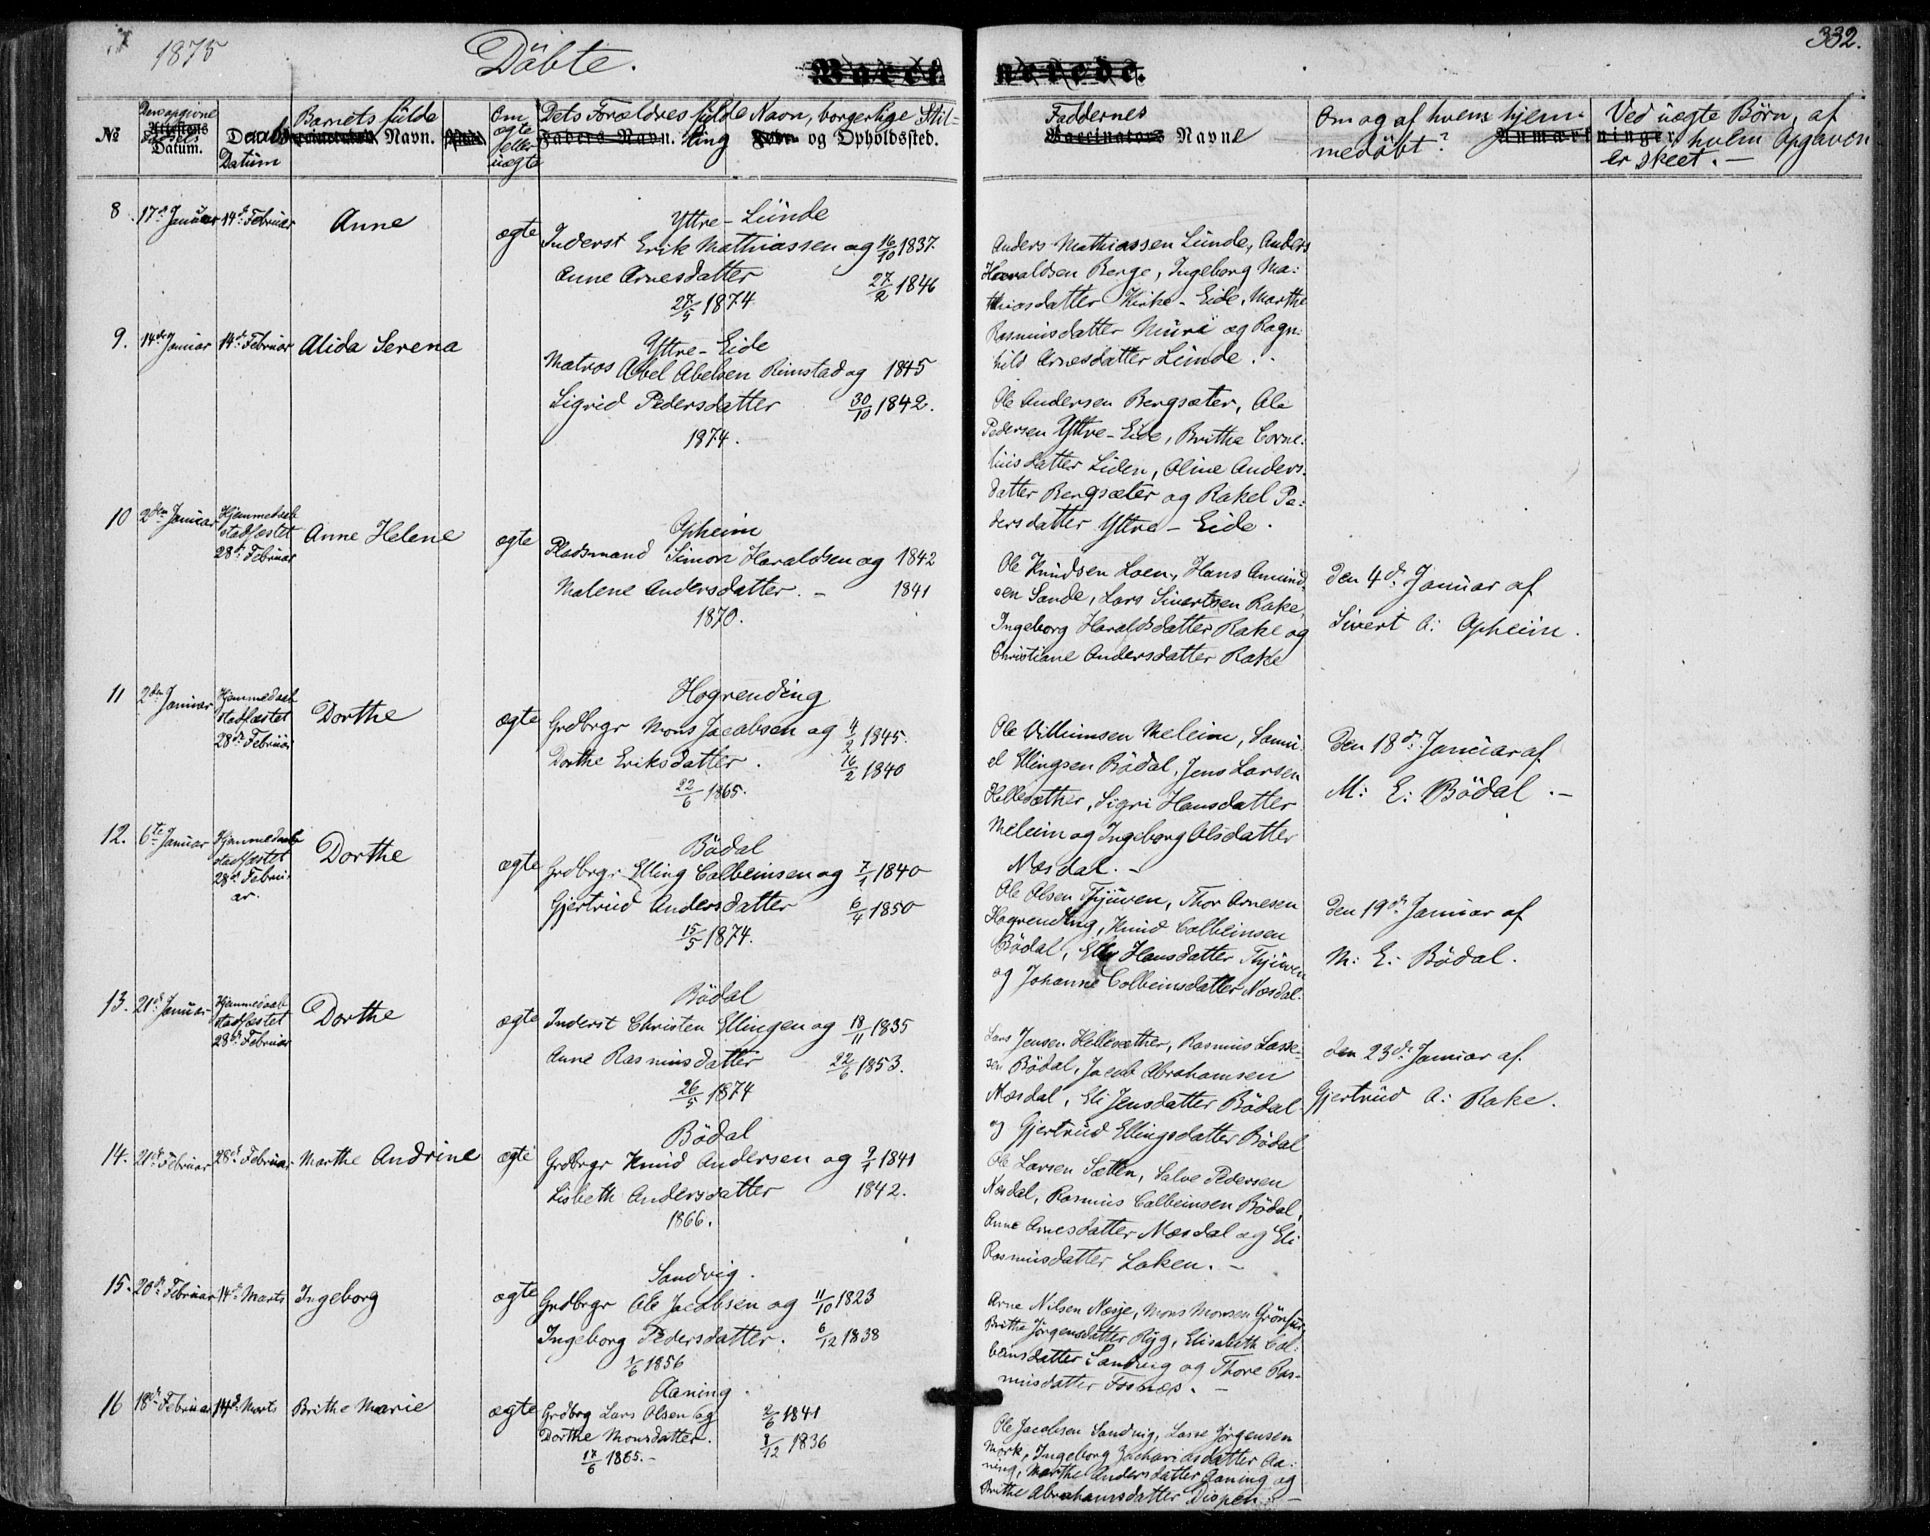 1875
Döbte.
332.
№
Datum.
Daabs
Datum
Barnets fulde
Navn.
Om
ægte
eller
uægte
Dets Forældres fulde Navn, borgerlige Stil-
ling og Opholdssted.
Faddernes
Navne
Om og af hvem hjem-
medöbt?
Ved uægte Börn, af
hvem Opgaven
er skeet. —
8 17d. Januar 14d. Februar Anne ægte
Yttre-Lunde
Inderst Erik Mathiassen og 16/10 1837.
Anne Arnesdatter 27/2 1846
27/5 1874
Anders Mathiassen Lunde, Anders
Haraldsen Berge, Ingeborg Ma-
thiasdatter Kirke-Eide, Marthe
Rasmusdatter Muri og Ragn-
hild Arnesdatter Lunde.
9. 14de Januar 14d. Februar Alida Serena
Yttre-Eide
Matros Abel Abelsen Rimstad og 1845
Sigrid Pedersdatter 30/10 1842.
1874.
Ole Andersen Bergsæter, Ole
Pedersen Yttre-Eide, Brithe Corne-
liusdatter Liden, Oline Anders-
datter Bergsæter og Rakel Pe-
dersdatter Yttre-Eide.
10 2den Januar Hjemmedaab
stadfæstet
28d. Februar
Anne Helene ægte
Opheim
Pladsmand Simon Haraldsen og 1842
Malene Andersdatter. – 1841
1870.
Ole Knudsen Loen, Hans Amund-
sen Sande, Lars Sivertsen Rake,
Ingeborg Haraldsdatter Rake og
Christiane Andersdatter Rake
Den 4d. Januar af
Sivert A: Opheim.
11 2den Januar Hjemmedaab
stadfæstet
28d. Februar
Dorthe ægte
Hogrending
Grdbrgr Mons Jacobsen og 4/2 1845.
Dorthe Eriksdatter. 16/2 1840
22/6 1865.
Ole Villumsen Meleim, Samu-
el Ellingsen Bödal, Jens Larsen
Hellesæther, Sigri Hansdatter
Meleim og Ingeborg Olsdatter
Næsdal. –
Den 18d. Januar af
M: E: Bödal. –
12. 6te Januar Hjemmedaab
stadfæstet
28d. Febru-
ar.
Dorthe ægte
Bödal
Grdbrgr Elling Colbeinsen og 7/1 1840
Gjertrud Andersdatter 6/4 1850
15/5 1874.
Ole Olsen Thjuven, Thor Arnesen
Hogrending, Knud Colbeinsen
Bödal, Elly Hansdatter Thjuven
og Johanne Colbeinsdatter Næsdal.
Den 19d. Januar af
M: E: Bödal.
13. 21d. Januar Hjemmedaab
stadfæstet
28d. Februar
Dorthe ægte
Bödal
Inderst Christen Ellingen og 18/11 1835
Anne Rasmusdatter 22/6 1853.
26/5 1874
Lars Jensen Hellesæther, Rasmus Lasse-
sen Bödal, Jacob Abrahamsen
Næsdal, Eli Jensdatter Bödal
og Gjertrud Ellingsdatter Bödal
den 23d. Januar af
Gjertrud A: Rake.
14. 21d. Februar 28d. Februar Marthe Andrine ægte
Bödal
Grdbrgr Knud Andersen og 9/1 1841
Lisbeth Andersdatter 1842.
1866.
Ole Larsen Sætten, Salve Pedersen
Næsdal, Rasmus Colbeinsen Bödal,
Anne Arnesdatter Næsdal og Eli
Rasmusdatter Loken. –
15. 20d. Februar 14d. Marts Ingeborg ægte
Sandvig.
Grdbrgr Ole Jacobsen og 11/10 1823
Ingeborg Pedersdatter. 6/12 1838
1/6 1856
Arne Nilsen Næsje, Mons Monsen Grönfur,
Brithe Jörgensdatter Ryg, Elisabeth Col-
beinsdatter Sandvig og Thore Ras-
musdatter Fosnæs. –
16 18d. Februar 14d. Marts Brithe Marie ægte
Aaning.
Grdbrg Lars Olsen og 2/6 1841
Dorthe Monsdatter. 8/12 1836
17/6 1865. –
Ole Jacobsen Sandvig, Lasse Jörgensen
Mork, Ingeborg Zachariasdatter Aa-
ning, Marthe Andersdatter Aaning og
Brithe Abrahamsdatter Dispen. –